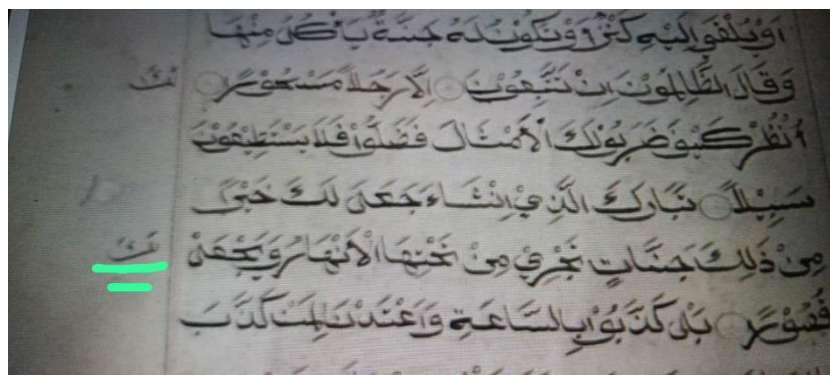 اَوْ يُلْقَوا اِلَيْهِ كَنْزٌ اَوْ تَكُوْنُ لَهُ جَنَّةٌ يَاْكُلُ مِنْهَا
وَقَالَ الظَّالِمُوْنَ اِنْ تَتَّبِعُوْنَ اِلَّا رَجُلًا مَسْحُوْرًا
اُنْظُرْ كَيْفَ ضَرَبُوْا لَكَ الْاَمْثَالَ فَضَلُّوْا فَلَا يَسْتَطِيْعُوْنَ
سَبِيْلًا تَبَارَكَ الَّذِيْ اِنْ شَاءَ جَعَلَ لَكَ خَيْرًا
مِنْ ذٰلِكَ جَنَّاتٍ تَجْرِيْ مِنْ تَحْتِهَا الْاَنْهَارُ وَيَجْعَلْ
قُصُوْرًا بَلْ كَذَّبُوْا بِالسَّاعَةِ وَاَعْتَدْنَا لِمَنْ كَذَّبَ